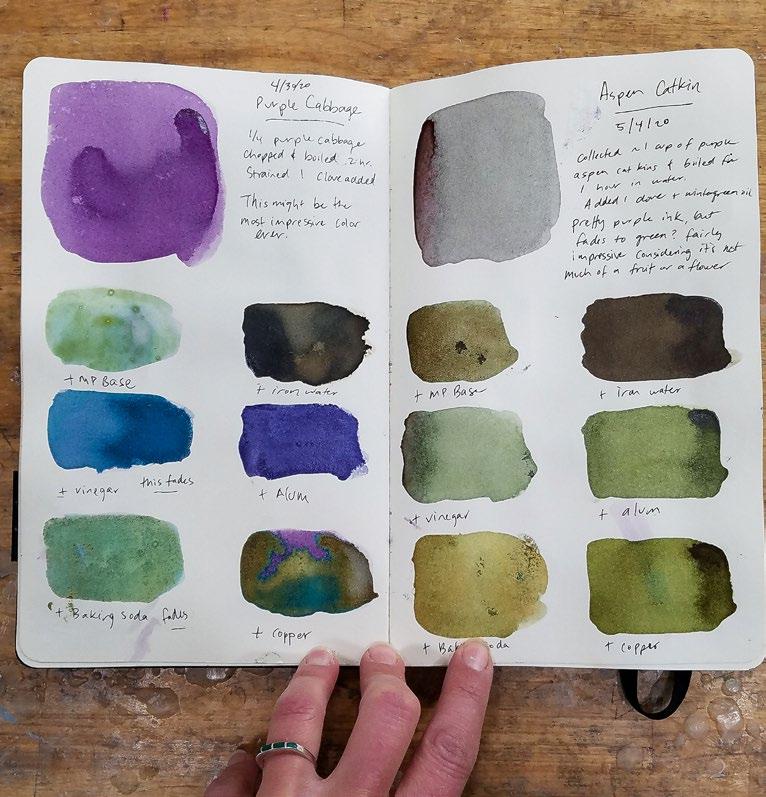 4/30/20
Purple Cabbage
1/4 purple cabbage
chopped & boiled .2 hr.
Strained 1 clove added
This might be the
most impressive color
ever.
+ MP Base
+ iron water
+ vinegar this fades
+ Alum
+ Baking soda fades
+ copper
Aspen Catkin
5/4/20
Collected ~1 cup of purple
aspen catkins & boiled for
1 hour in water.
Added 1 clove + wintergreen oil
pretty purple ink, but
fades to green? fairly
impressive considering it's not
much of a fruit or a flower
+ MP Base
+ iron water
+ vinegar
+ alum
+ Ba oda
+ copper